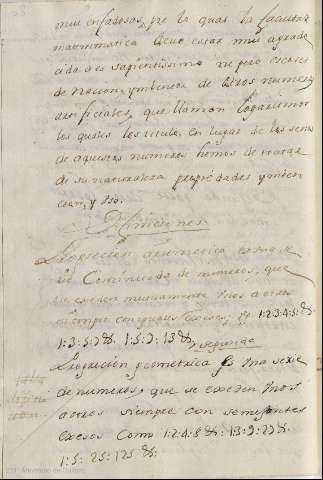 mui enfadosas, por lo qual la facultad
mathematica deve estar mui agrade
cida de
de nacion, inventor de otros numeros
artificiales, que llaman logarithmos
los quales
de aquestos numeros hemos de tratar
de su naturaleza propiedades
cion, y uso.
Difiniciones
Progrecion arismetica es una se
rie Continuada de numeros, que
se exeden mutuamente unos a otros
siempre con yguales exesos; vg. 1:2:3:4:5:&.
1:3:5:7&. 1:5:9:13&.
segunda
Progrecion geometrica es una serie
de numeros, que se exeden unos
a otros siempre con semejantes
exesos Como 1:2:4:8&: 1:3:9:27&:
1:5:25:125&: